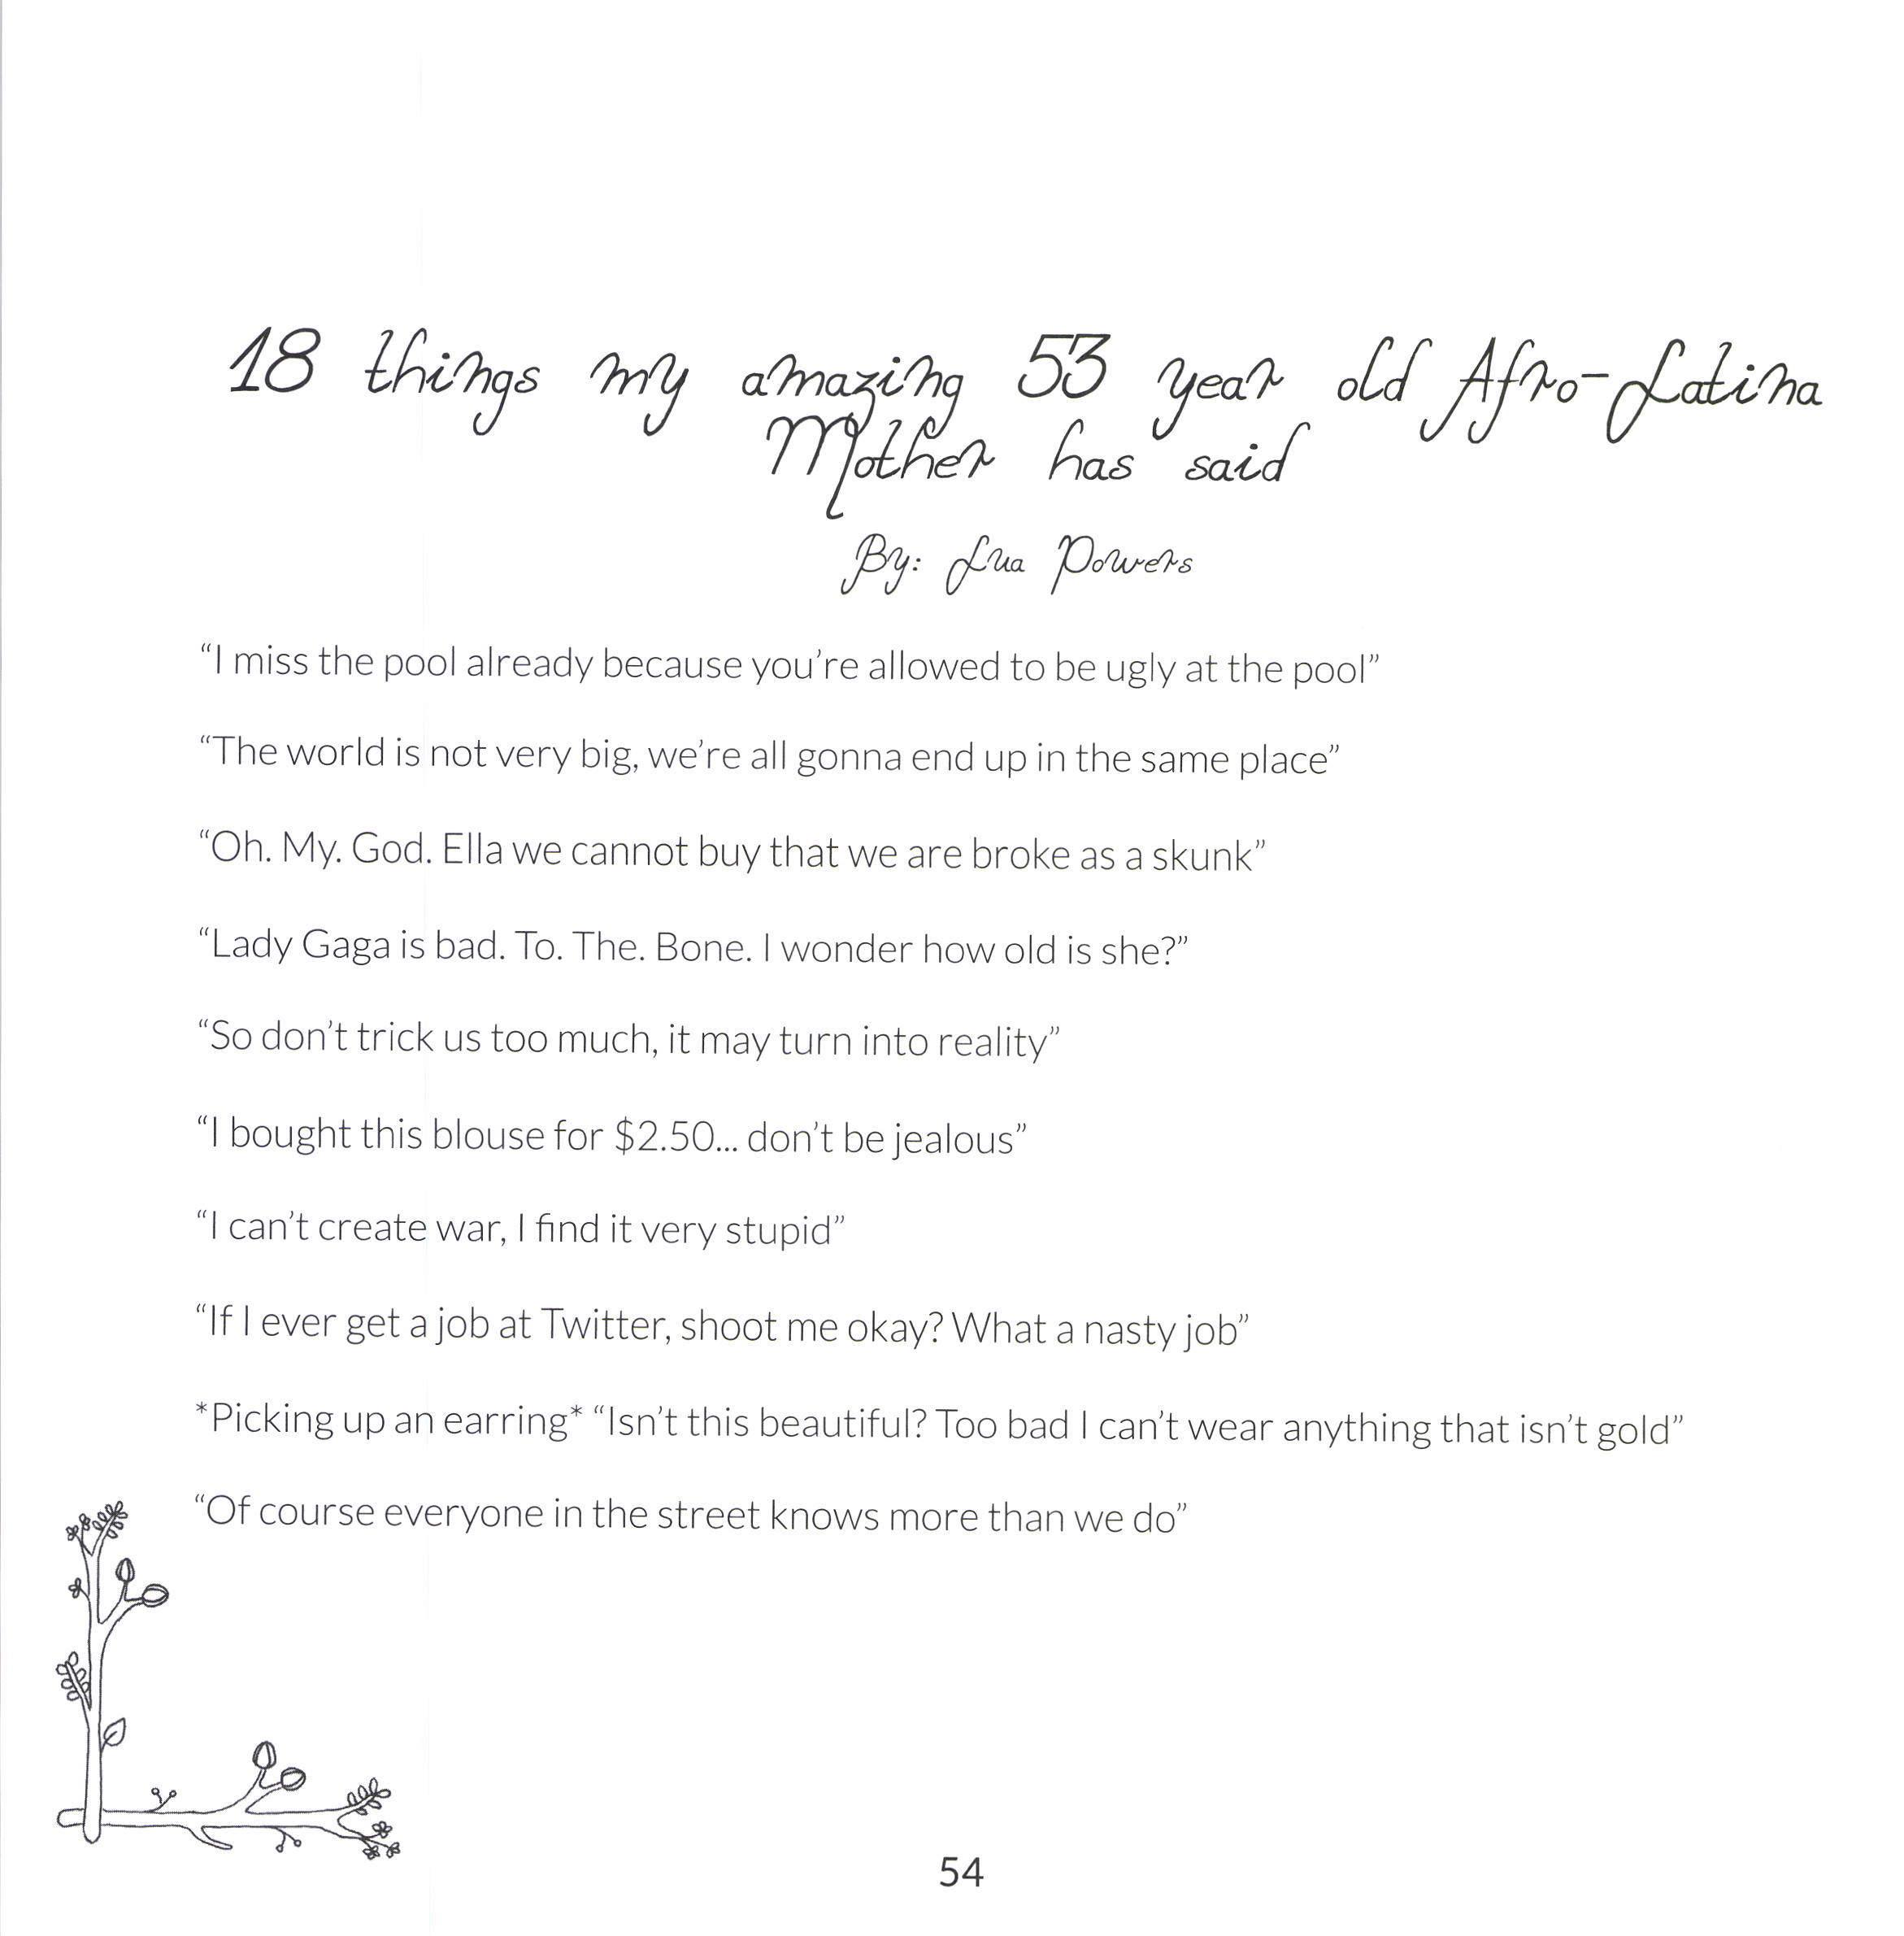 18 things my amazing 53 year old Afro-Latina
Mother has said
By: Lua Powers
“I miss the pool already because you’re allowed to be ugly at the pool”
“The world is not very big, we’re all gonna end up in the same place”
“Oh. My. God. Ella we cannot buy that we are broke as a skunk”
“Lady Gaga is bad. To. The. Bone. I wonder how old is she?”
“So don’t trick us too much, it may turn into reality”
“I bought this blouse for $2.50... don’t be jealous”
“I can’t create war, I find it very stupid”
“If I ever get a job at Twitter, shoot me okay? What a nasty job”
*Picking up an earring* “Isn’t this beautiful? Too bad I can’t wear anything that isn’t gold”
“Of course everyone in the street knows more than we do”
54